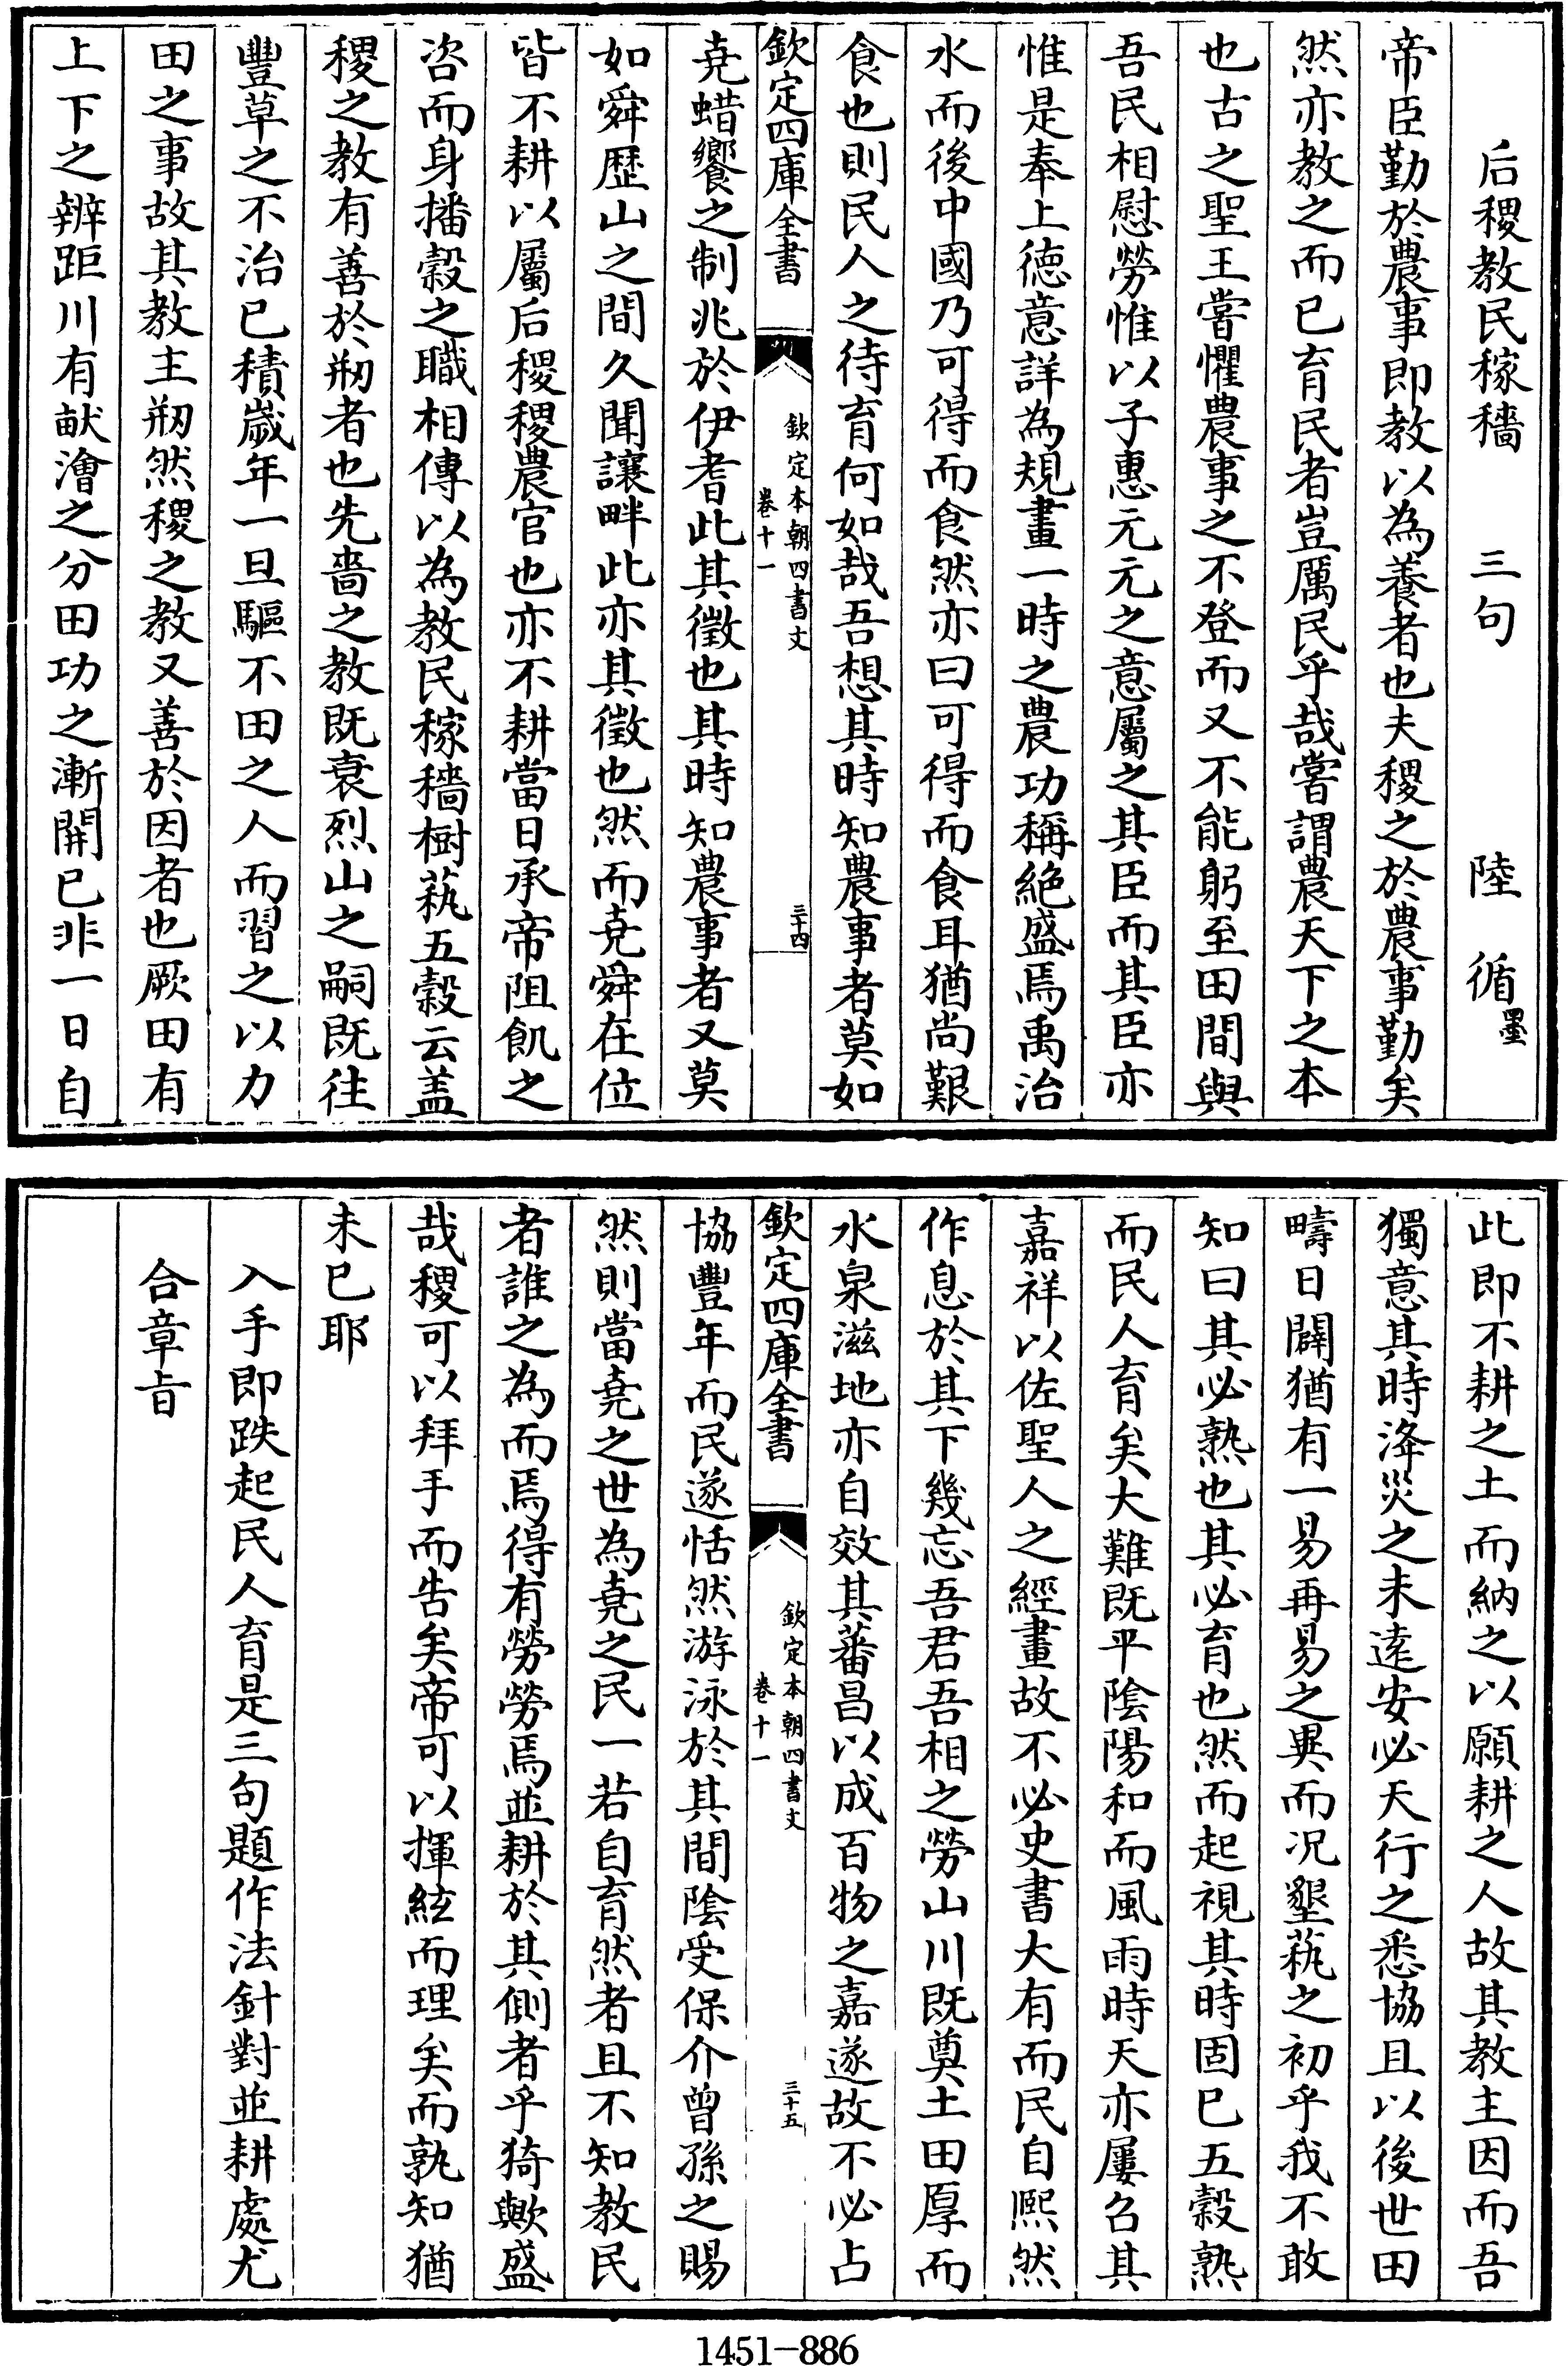 后稷教民稼穡　三句　陸　循墨
帝臣勤於農事即教以為養者也夫稷之於農事勤矣
然亦教之而已育民者豈厲民乎哉嘗謂農天下之本
也古之聖王嘗懼農事之不登而又不能躬至田間與
吾民相慰勞惟以子惠元元之意屬之其臣而其臣亦
惟是奉上德意詳為規畫一時之農功稱絶盛焉禹治
水而後中國乃可得而食然亦曰可得而食耳猶尚艱
食也則民人之待育何如哉吾想其時知農事者莫如
欽定四庫全書
欽定本朝四書文
卷十一
三十四
堯蜡饗之制兆於伊耆此其徵也其時知農事者又莫
如舜歴山之間久聞讓畔此亦其徵也然而堯舜在位
皆不耕以屬后稷稷農官也亦不耕當日承帝阻飢之
咨而身播穀之職相傳以為教民稼穡樹蓺五穀云盖
稷之教有善於剏者也先嗇之教既衰烈山之嗣既往
豐草之不治已積嵗年一旦驅不田之人而習之以力
田之事故其教主剏然稷之教又善於因者也厥田有
上下之辨距川有畎澮之分田功之漸開已非一日自
此即不耕之土而納之以願耕之人故其教主因而吾
獨意其時洚災之未逺安必天行之悉協且以後世田
疇日闢猶有一易再易之異而况墾蓺之初乎我不敢
知曰其必熟也其必育也然而起視其時固已五穀熟
而民人育矣大難既平陰陽和而風雨時天亦屢名其
嘉祥以佐聖人之經畫故不必史書大有而民自熈然
作息於其下幾忘吾君吾相之勞山川既奠土田厚而
水泉滋地亦自效其蕃昌以成百物之嘉遂故不必占
欽定四庫全書
欽定本朝四書文
卷十一
三十五
協豐年而民遂恬然游泳於其間陰受保介曾孫之賜
然則當堯之世為堯之民一若自育然者且不知教民
者誰之為而焉得有勞勞焉並耕於其側者乎猗歟盛
哉稷可以拜手而告矣帝可以揮絃而理矣而孰知猶
未已耶
入手即跌起民人育是三句題作法針對並耕處尤
合章旨
1451-886